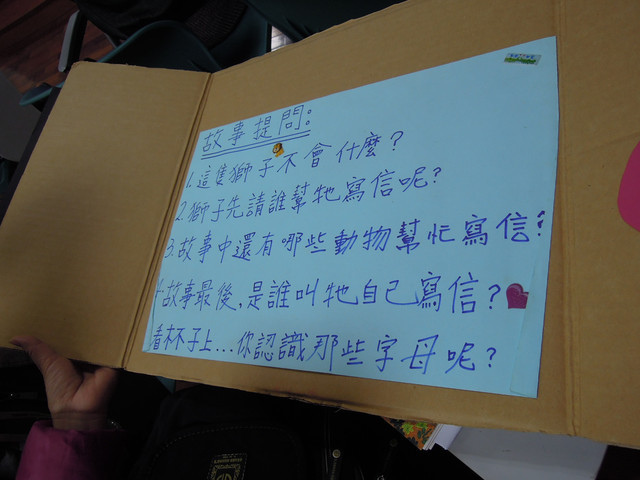 故事提問:
1.這隻獅子不會什麼?
2.獅子先請誰幫牠寫信呢?
3.故事中還有哪些動物幫忙寫信?
4.故事最後,是誰叫牠自己寫信?
看木不子上...你認識那些字母呢?